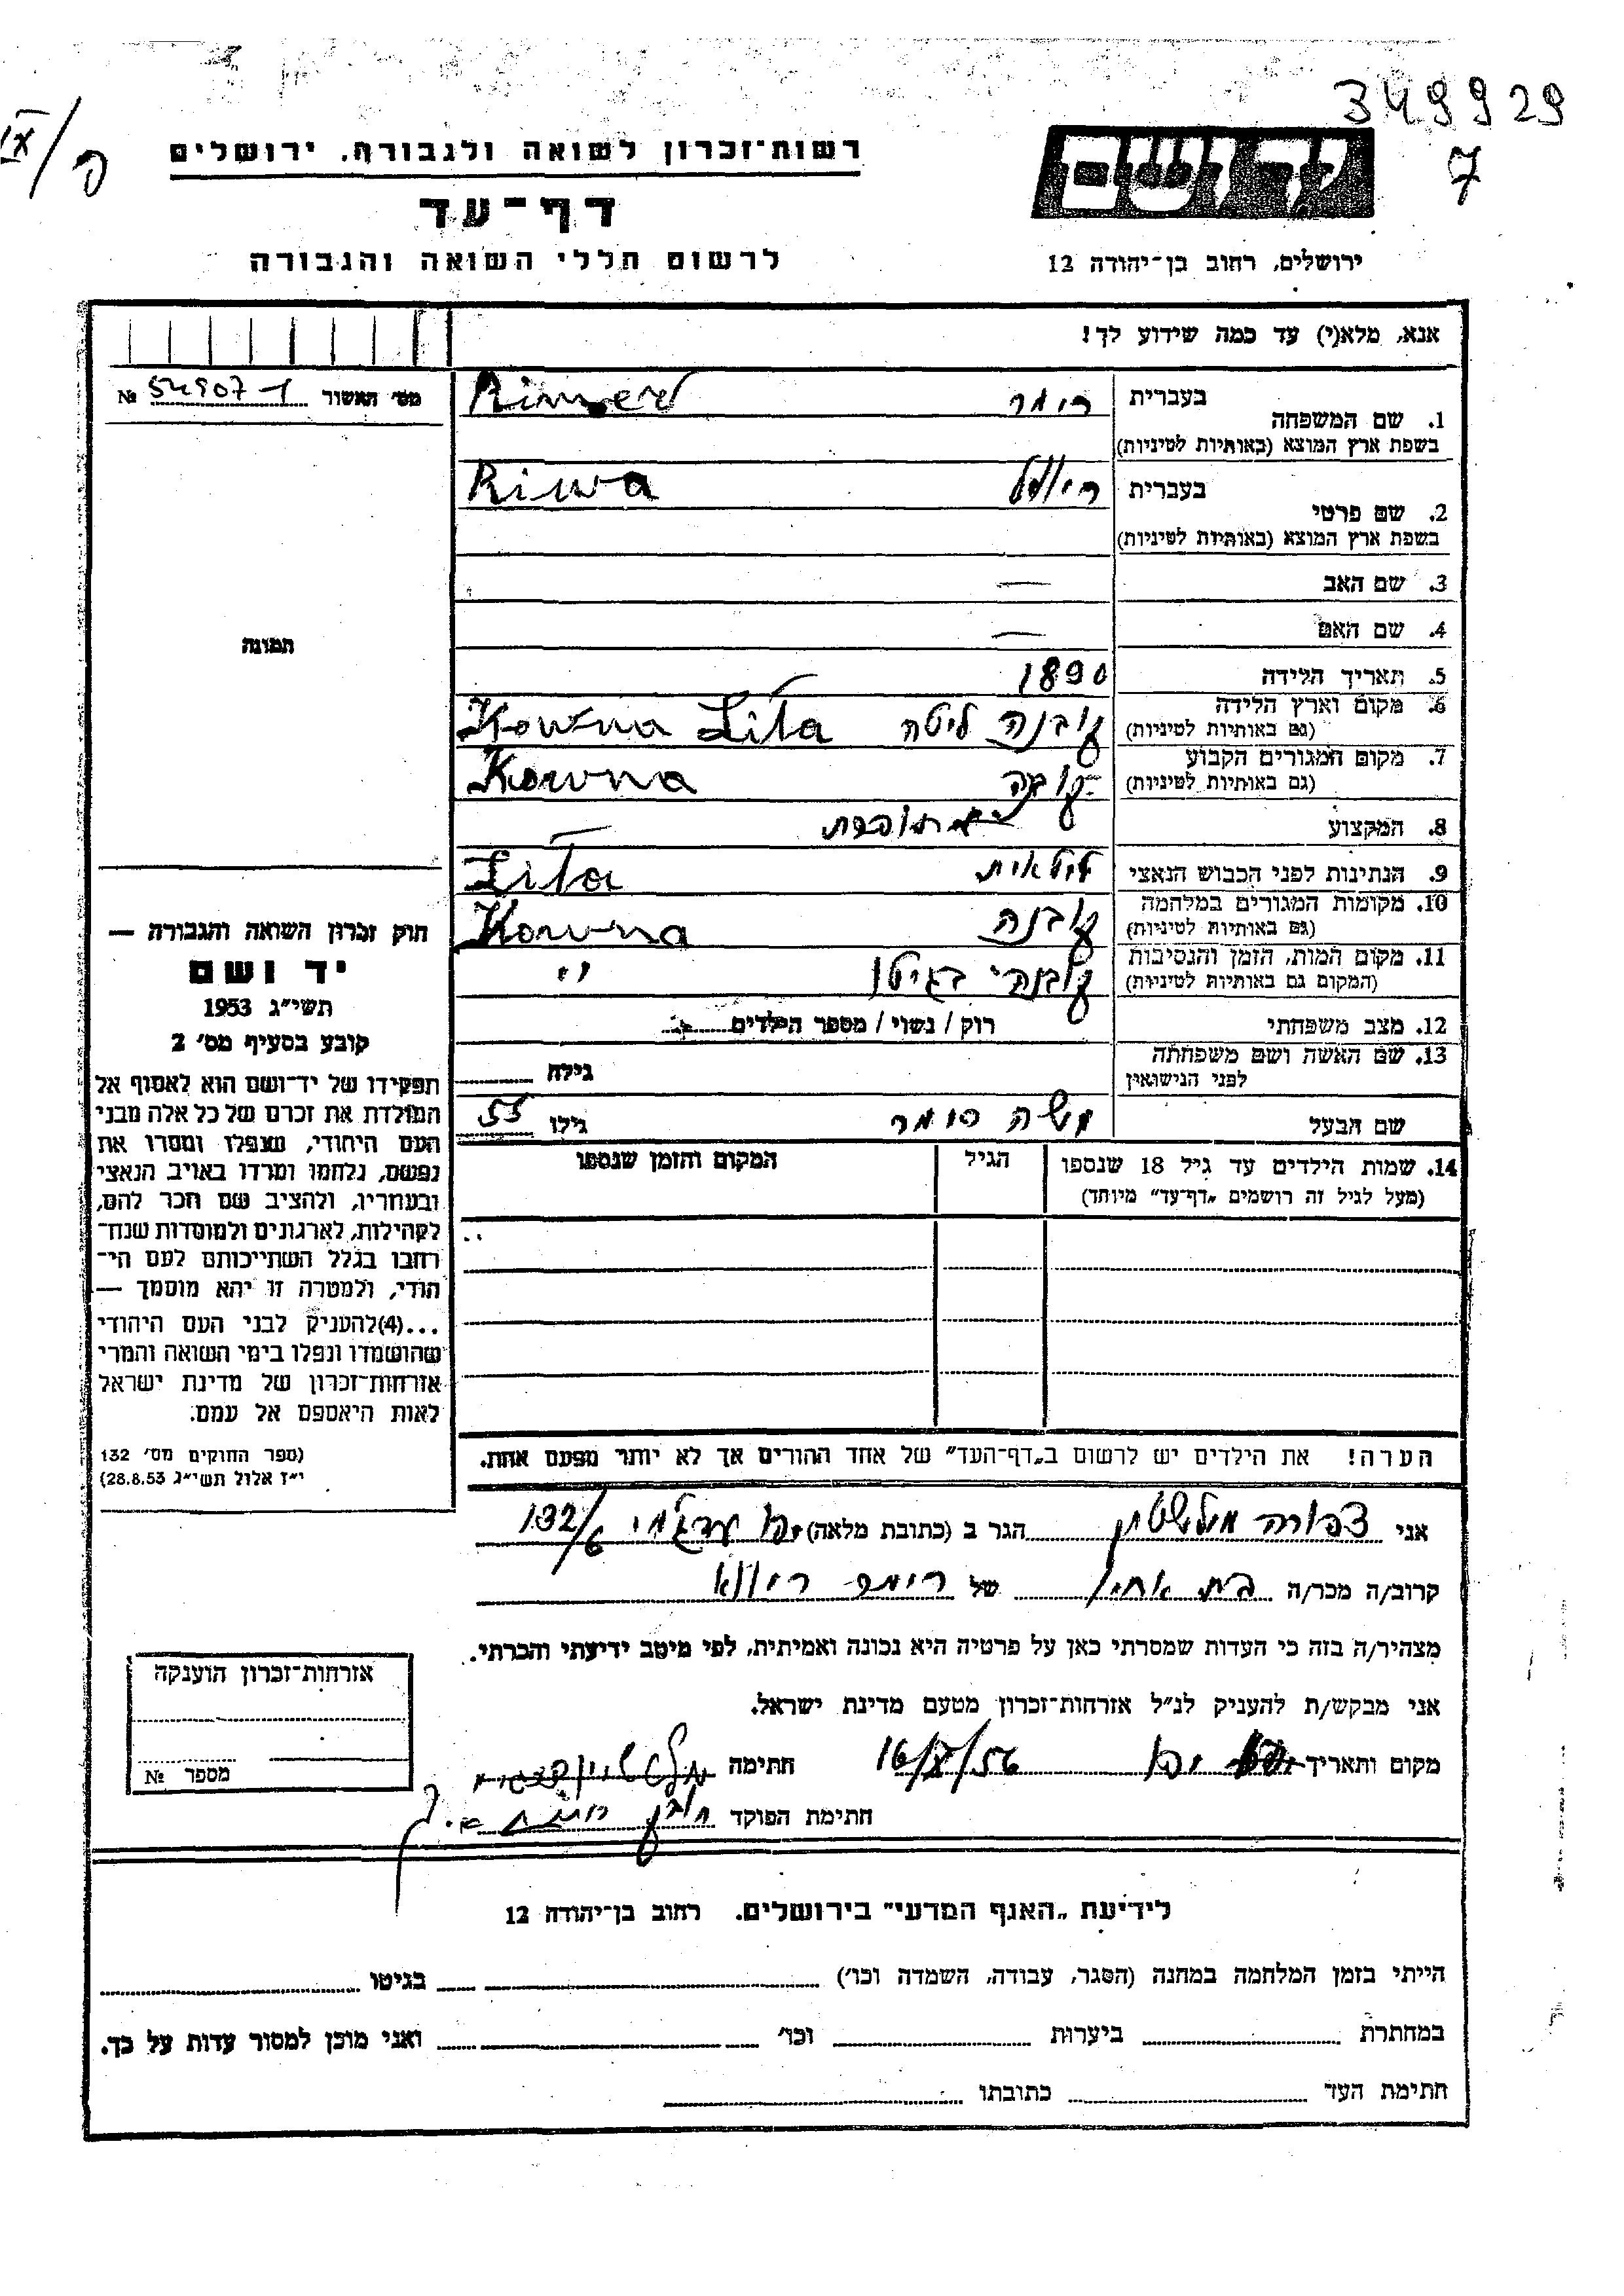 349929
7
IX/
פ
רשות־זכרון לשואה ולגבורה, ירושלים
דף־עד
לרשום חללי השואה והגבורה
יד ושם
ירושלים, רחוב בן־יהודה 12
אנא, מלא(י) עד כמה שידוע לך!
מס׳ האשור 54907-1 №
תמונה
1. שם המשפחה בעברית רימר Rimer
בשפת ארץ המוצא (באותיות לטיניות)
2. שם פרטי בעברית Riwa
בשפת ארץ המוצא (באותיות לטיניות)
3. שם האב —
4. שם האם —
5. תאריך הלידה 1890
6. מקום וארץ הלידה קובנה ליטה Kowna Lita
(גם באותיות לטיניות)
7. מקום המגורים הקבוע קובנה Kowna
(גם באותיות לטיניות)
8. המקצוע תופרת
9. הנתינות לפני הכבוש הנאצי ליטאית Lita
10. מקומות המגורים במלחמה קובנה Kowna
(גם באותיות לטיניות)
11. מקום המות, הזמן והנסיבות בגיטו
(המקום גם באותיות לטיניות)
12. מצב משפחתי רוק / נשוי / מספר הילדים
13. שם האשה ושם משפחתה
לפני הנישואין גילה
שם הבעל משה רימר גילו 55
14. שמות הילדים עד גיל 18 שנספו הגיל המקום והזמן שנספו
(מעל לגיל זה רושמים „דף־עד” מיוחד)
הערה! את הילדים יש לרשום ב„דף־העד” של אחד ההורים אך לא יותר מפעם אחת.
חוק זכרון השואה והגבורה —
יד ושם
תשי״ג 1953
קובע בסעיף מס׳ 2
תפקידו של יד־ושם הוא לאסוף אל
המולדת את זכרם של כל אלה מבני
העם היהודי, שנפלו ומסרו את
נפשם, נלחמו ומרדו באויב הנאצי
ובעוזריו, ולהציב שם וזכר להם,
לקהילות, לארגונים ולמוסדות שנח־
רבו בגלל השתייכותם לעם הי־
הודי, ולמטרה זו יהא מוסמך —
...(4)להעניק לבני העם היהודי
שהושמדו ונפלו בימי השואה והמרי
אזרחות־זכרון של מדינת ישראל
לאות היאספם אל עמם.
(ספר החוקים מס׳ 132
י״ז אלול תשי״ג 28.8.53)
אני צפורה הגר ב (כתובת מלאה) יפו 132/6
קרוב/ה מכר/ה בת אחי של רימר ריווא
מצהיר/ה בזה כי העדות שמסרתי כאן על פרטיה היא נכונה ואמיתית, לפי מיטב ידיעתי והכרתי.
אני מבקש/ת להעניק לנ״ל אזרחות־זכרון מטעם מדינת ישראל.
מקום ותאריך יפו 16/X/56 חתימה
חתימת הפוקד
אזרחות־זכרון הוענקה
מספר №
לידיעת „האגף המדעי” בירושלים. רחוב בן־יהודה 12
הייתי בזמן המלחמה במחנה (הסגר, עבודה, השמדה וכו׳) בגיטו
במחתרת ביערות וכו׳ ואני מוכן למסור עדות על כך.
חתימת העד כתובתו